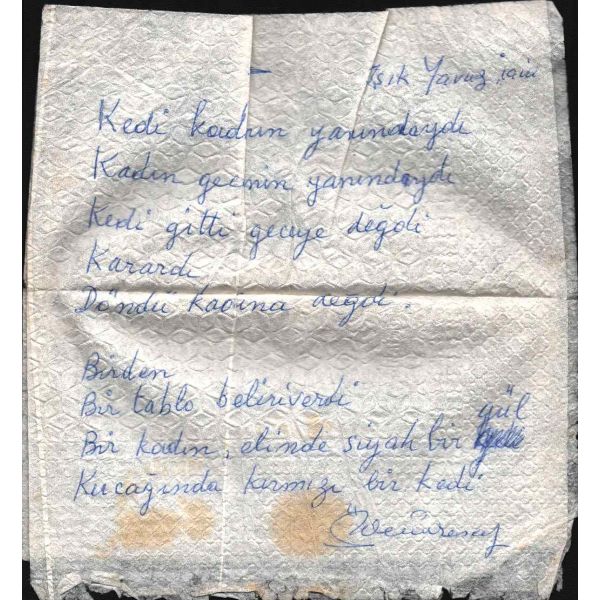 Işık Yavuz için
Kedi kadının yanındaydı
Kadın gecenin yanındaydı
Kedi gitti geceye değdi
Karardı
Döndü kadına değdi.
Birden
Bir tablo beliriverdi
Bir kadın, elinde siyah bir gül
Kucağında kırmızı bir kedi